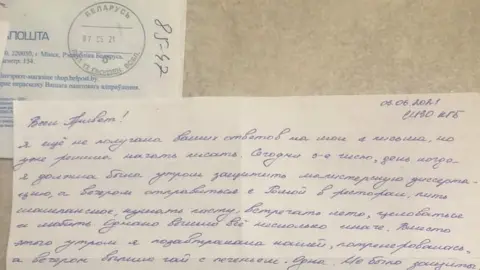 ПОШТА
220050, г. Мінск, Рэспубліка Беларусь
інтэрнэт-магазін shop.belpost.by
БЕЛАРУСЬ
07 05 21
85-47
03.06.2021
СИЗО КГБ
Всем Привет!
Я ещё не получала ваших ответов на мои письма, но
уже решила начать писать. Сегодня 3-е число, день когда
я должна была утром защитить магистерскую диссерта-
цию, а вечером отправиться с Ромой в ресторан, пить
шампанское, кушать пасту, встречать лето, целоваться
и любить. Однако вышло всё несколько иначе. Вместо
этого утром я позавтракала кашей, потренировалась,
а вечером выпила чай с печеньем. Одна. Не было защиты